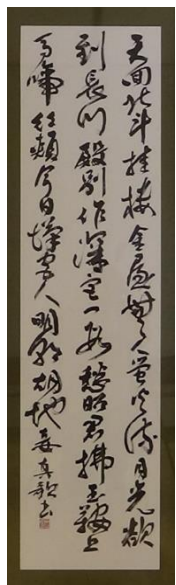 天回北斗挂樓金屋無人螢火流月光欲
到長門殿別作深宮一段愁昭君拂玉鞍上
馬啼紅頰今日漢宮人明朝胡地妾 真歌書